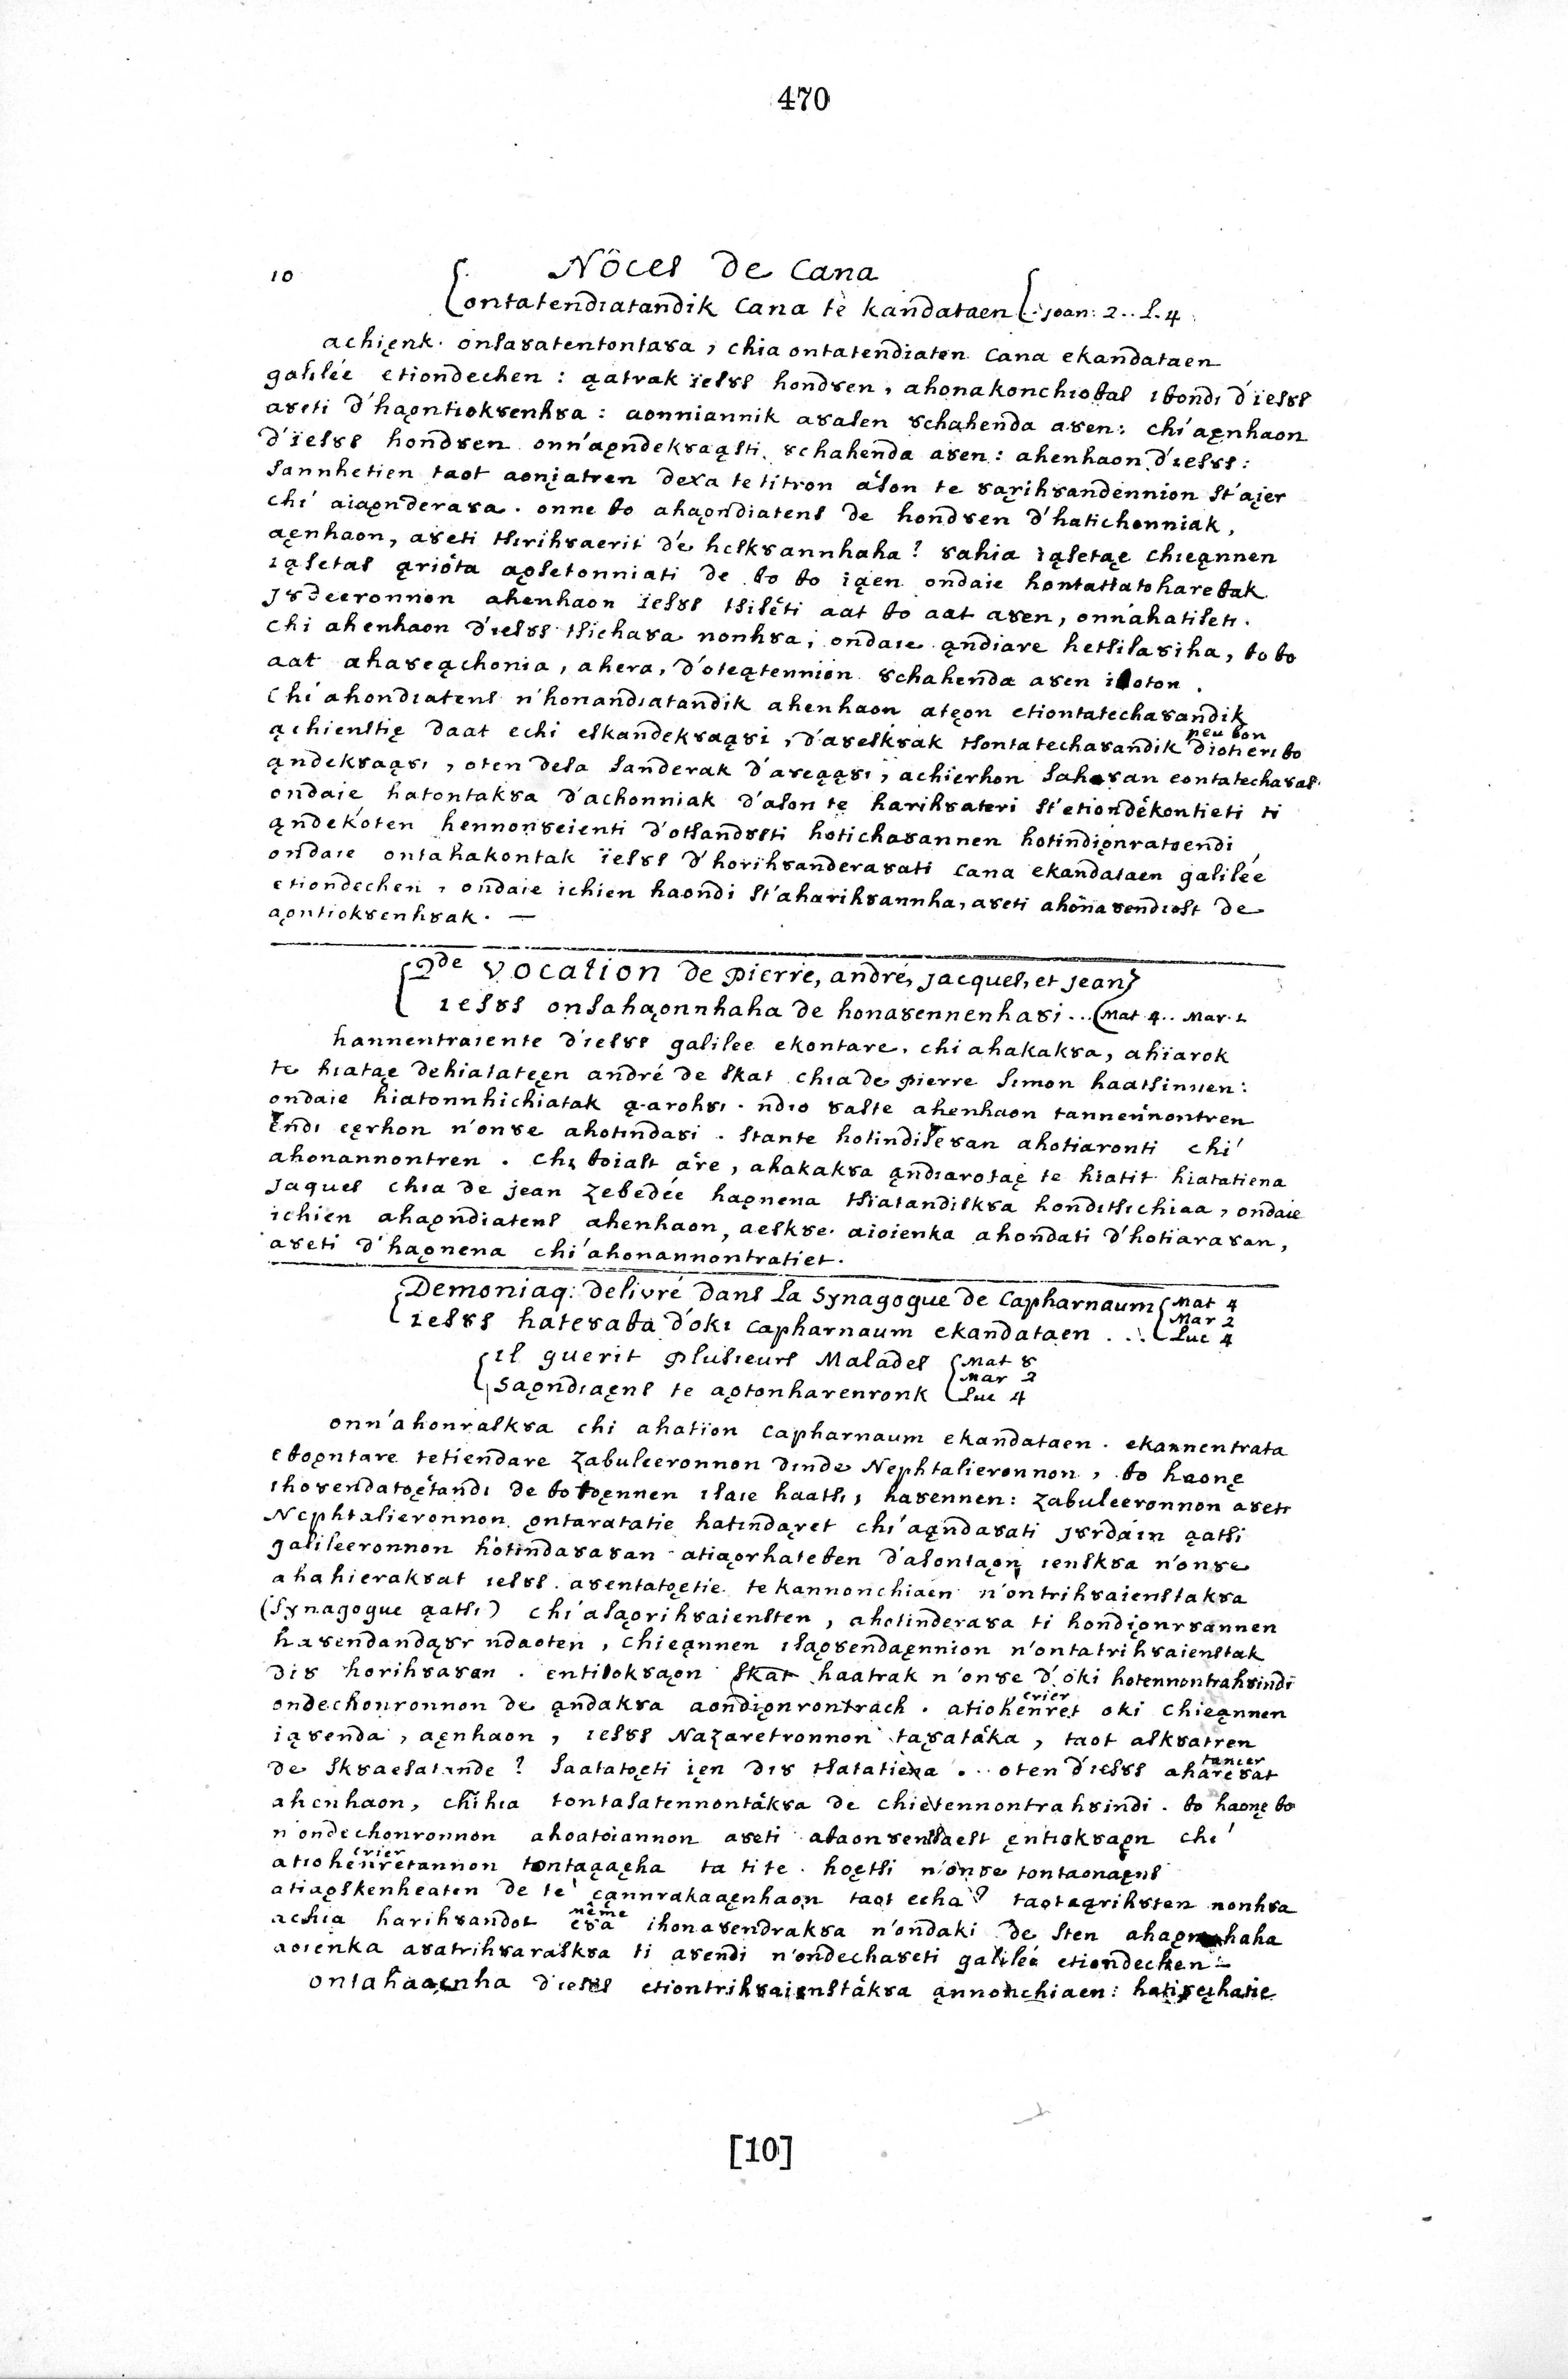 470
10
Nôces De Cana
ontatendiatandik Cana te kandataen joan: 2.. L. 4
achięnk. onsaȣatentontaȣa, chia ontatendiaten Cana ekandataen
galilée etiondechen: ąatrak ïesȣs hondȣen, ahonakonchiotas ithondi d'ïesȣs
aȣeti d'hąontiokȣenhȣa: aonniannik aȣasen ȣchahenda aȣen: chi'aęnhaon
d'ïesȣs hondȣen onn'aǫndekȣaąsti ȣchahenda aȣen: ahenhaon d'iesȣs:
sannhetien taot aonįatren dexa te titron áson te ȣarihȣandennion st'ąįer
chi' aiaǫnderaȣa. onne tho ahaǫndiatens de hondȣen d'hatichonniak,
aęnhaon, aȣeti tsirihȣaerit de heskȣannhaha? ȣahia ïąsetaę chieąnnen
ïąsetas ąriôta aǫsetonniati de tho tho ïąen ondaie hontattatoharethak
jȣdeeronnon ahenhaon ïesȣs tsiséti aat tho aat aȣen, onn'ahatiseti.
chi ahenhaon d'iesȣs tsichaȣa nonhȣa, ondaie ąndiare hetsisaȣiha, tho tho
aat ahaȣeąchonia, ahera, d'oteątennion ȣchahenda aȣen ioton.
chi ahondiatens n'honandiatandik ahenhaon atęon etiontatechaȣandik
peu bon
ąchienstię daat echi eskandekȣaąȣi, d'aȣeskȣak tsontatechaȣandik d'iotieri tho
ąndekȣaąȣi, oten desa sanderak d'aȣeąąȣi, achierhon sahaȣan eontatechaȣas.
ondaie hatontakȣa d'achonniak d'ason te harihȣateri st'etiondékontieti ti
ąndekóten hennonȣeienti d'otsandȣsti hotichaȣannen hotindiǫnratoendi
ondaie ontahakontak ïesȣs d'horihȣanderaȣati Cana ekandataen galilée
etiondechen, ondaie ichien haondi st'aharihȣannha, aȣeti ahonaȣendiost de
aǫntiokȣenhȣak. —
2de vocation de pierre, andré, jacques, et jean
iesȣs onsahąonnhaha de honaȣennenhaȣi... Mat 4.. Mar. 1
hannentraiente d'iesȣs galilee ekontare, chi ahakakȣa, ahiarok
te hiataę dehiatatęen andré de skat chia de pierre simon haatsinnen:
ondaie hiatonnhichiatak ą.arohȣi. ndio ȣaste ahenhaon tannennontren
endi eęrhon n'onȣe ahotindaȣi. stante hotindiseȣan ahotiaronti chi'
ahonannontren. chi thoiast áre, ahakakȣa ąndiarotaę te hiatit hiatatiena
jaques chia de jean Zebedée haǫnena tsiatandiskȣa honditsichiaa, ondaie
ichien ahaǫndiatens ahenhaon, aeskȣe. aioienka ahondati d'hotiaraȣan,
aȣeti d'haǫnena chi'ahonannontratiet.
Demoniaq: delivré dans la Synagogue de Capharnaum Mat 4
Mar 2
iesȣs hateȣatha d'oki capharnaum ekandataen... Luc 4
il guerit plusieurs Malades Mat 8
Mar 2
saǫndiaęns te aǫtonharenronk Luc 4
onn'ahonraskȣa chi ahation capharnaum ekandataen. ekannentrata
ethoǫntare tetiendare Zabuleeronnon dinde Nephtalieronnon, tho haonę
ihoȣendatoętandi de thothoęnnen isaie haatsi, haȣennen: Zabuleeronnon aȣeti
Nephtalieronnon ǫntaratatie hatindąret chi'aąndaȣati jȣrdain ąatsi
galileeronnon hotindaȣaȣan atiaǫrhatethen d'asontaǫn ienskȣa n'onȣe
ahahierakȣat iesȣs. aȣentatoętie te kannonchiaen n'ontrihȣaienstakȣa
(Synagogue ąatsi) chi'asaǫrihȣaiensten, ahotinderaȣa ti hondiǫnrȣannen
haȣendandąȣr ndaoten, chieąnnen isaǫȣendaęnnion n'ontatrihȣaienstak
diȣ horihȣaȣan. entiokȣaǫn skat haatrak n'onȣe d'oki hotennontrahȣindi
ondechonronnon de ąndakȣa aondiǫnrontrach. atiohenret oki chieąnnen
crier
iąȣenda, aęnhaon, iesȣs Nazaretronnon taȣatáka, taot askȣatren
de skȣaesatande? saatatoęti ięn diȣ tsatatiena... oten d'iesȣs ahareȣat
tancer
ahenhaon, chihia tontasatennontákȣa de chietennontrahȣindi. tho haonę tho
n'ondechonronnon ahoatoiannon aȣeti athaonȣentsaest ęntiokȣaǫn chi'
crier
atiohenretannon tontaąaęha ta ti te. hoętsi n'onȣe tontaonaęns
atiaǫskenheaten de te' ęannrakaaęnhaon taot echa? taotaąrihȣten nonhȣa
même
achia harihȣandot eȣa ihonaȣendrakȣa n'ondaki de sten ahaǫnhaha
aoienka aȣatrihȣaraskȣa ti aȣendi n'ondechaȣeti galilée etiondechen —
ontahaaęnha d'iesȣs etiontrihȣaienstákȣa ąnnonchiaen:
[10]